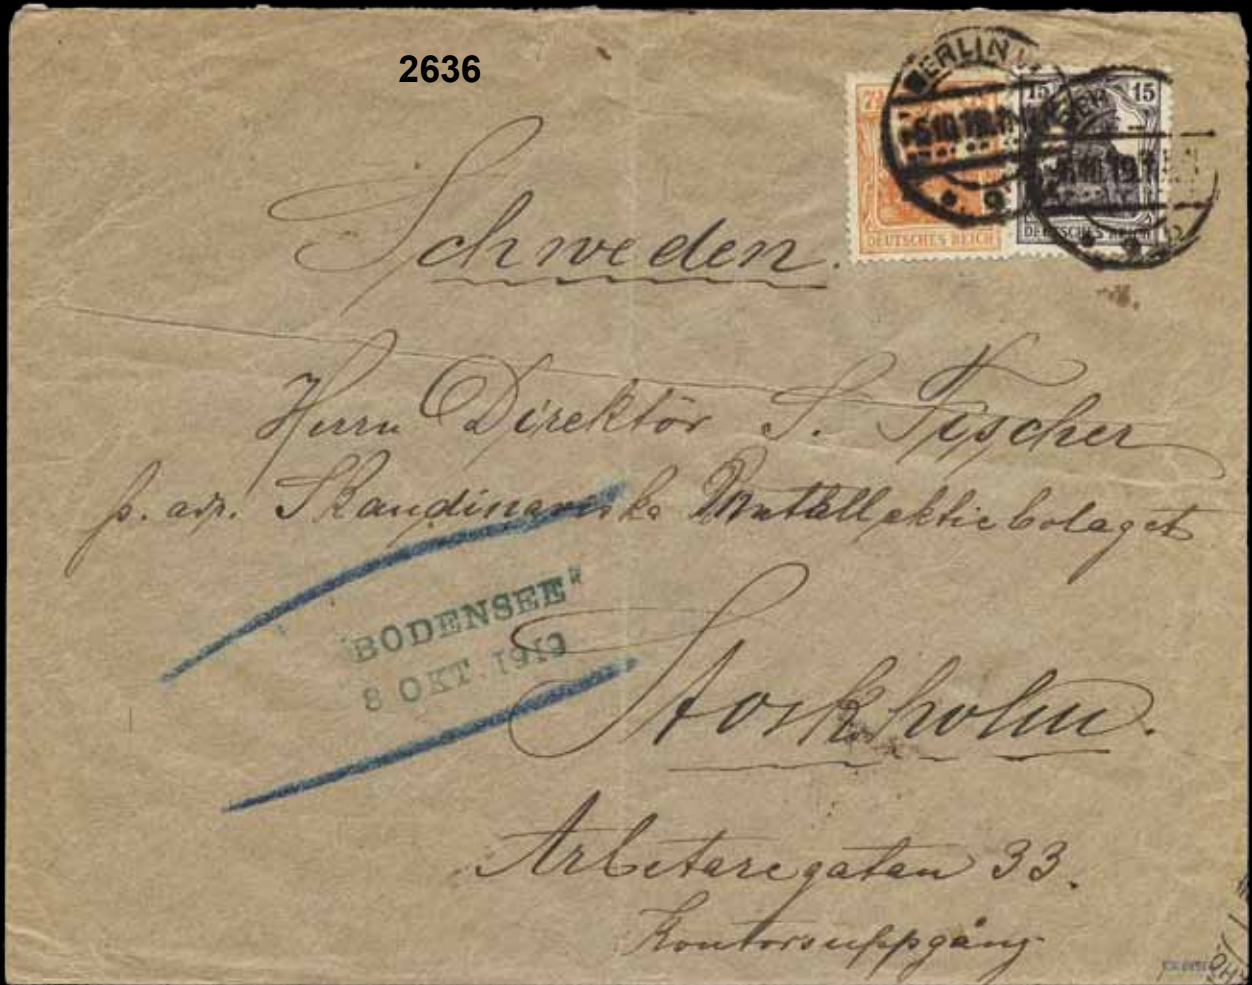 2636
BERLIN W.
7½
15 15
9
DEUTSCHES REICH
DEUTSCHES REICH
Schweden.
Herrn Direktör S. Fischer
p. adr. Skandinaviska Metallaktiebolaget
"BODENSEE"
8 OKT. 1919
Stockholm.
Arbetaregatan 33.
Kontorsuppgång